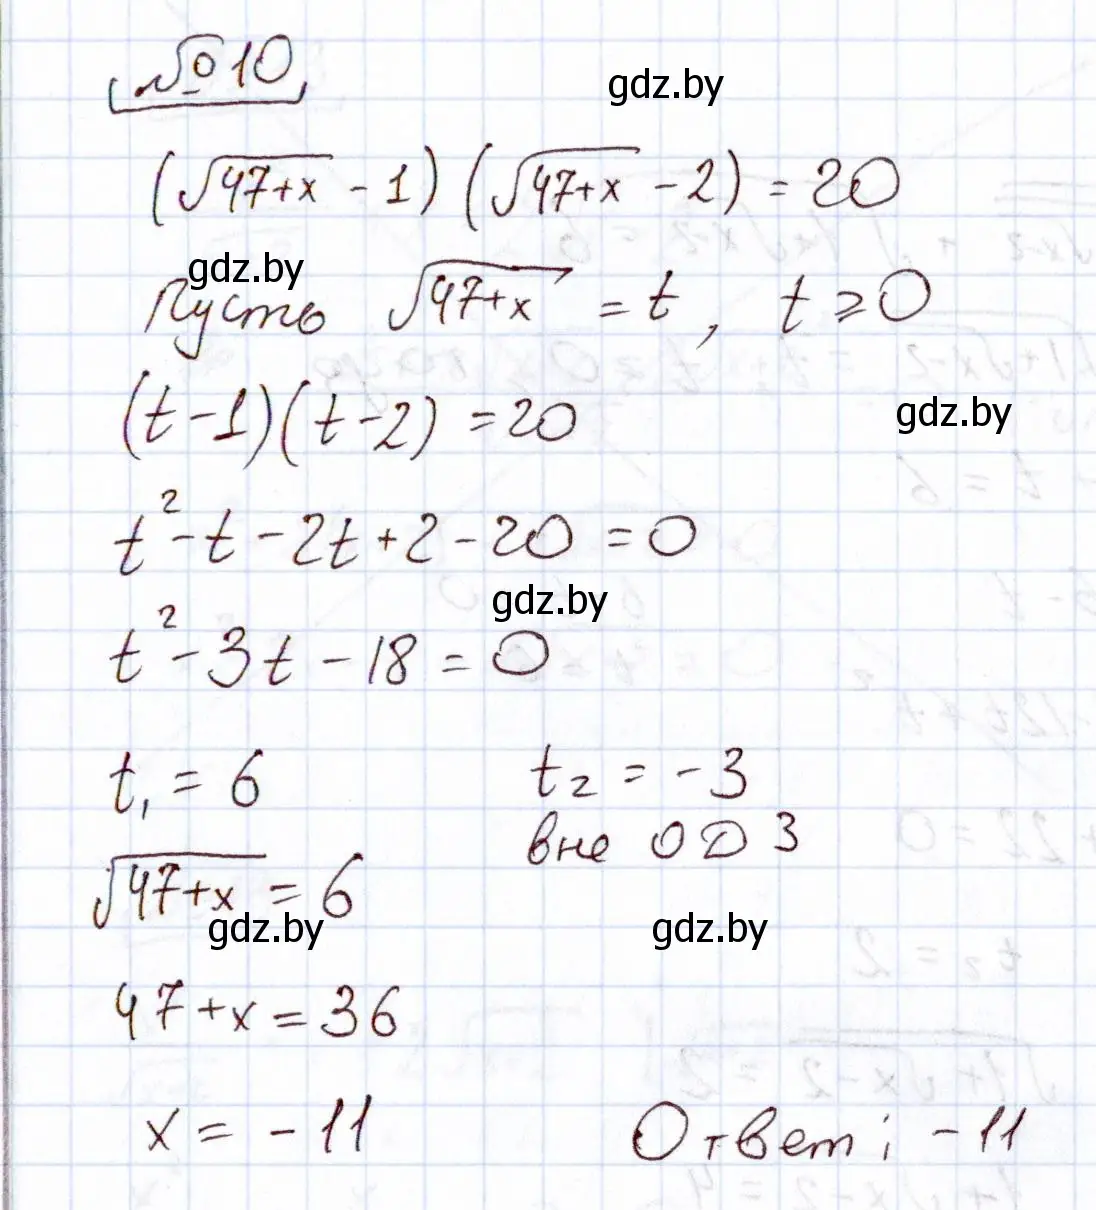 №10
gdz.by
(√47+x - 1) (√47+x - 2) = 20
gdz.by
Пусть √47+x = t, t ⩾ 0
(t - 1)(t - 2) = 20
gdz.by
t² - t - 2t + 2 - 20 = 0
gdz.by
t² - 3t - 18 = 0
t₁ = 6 t₂ = -3
вне ОДЗ
√47+x = 6
gdz.by gdz.by
47+x = 36
x = -11 Ответ: -11